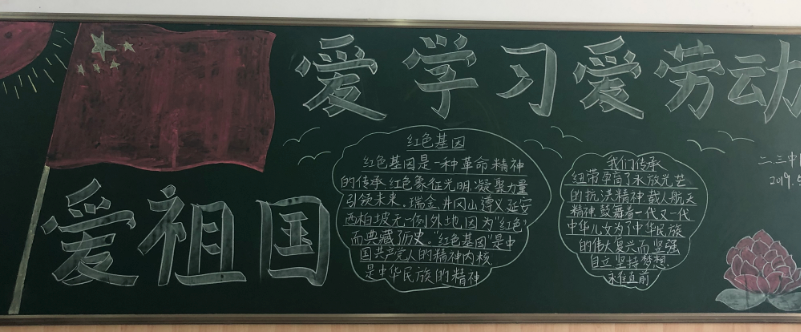 爱学习爱劳动
爱祖国
红色基因
红色基因是一种革命精神
的传承,红色象征光明,凝聚力量
引领未来。瑞金、井冈山、遵义、延安
西柏坡无一例外地因为"红色"
而典藏历史。"红色基因"是中
国共产党人的精神内核
是中华民族的精神
我们传承
红带孕育了永放光芒
的抗洪精神载人航天
精神鼓舞着一代又一代
中华儿女为了中华民族
的伟大复兴而坚强
自立坚持梦想
永往直前
二.三中
2019.5